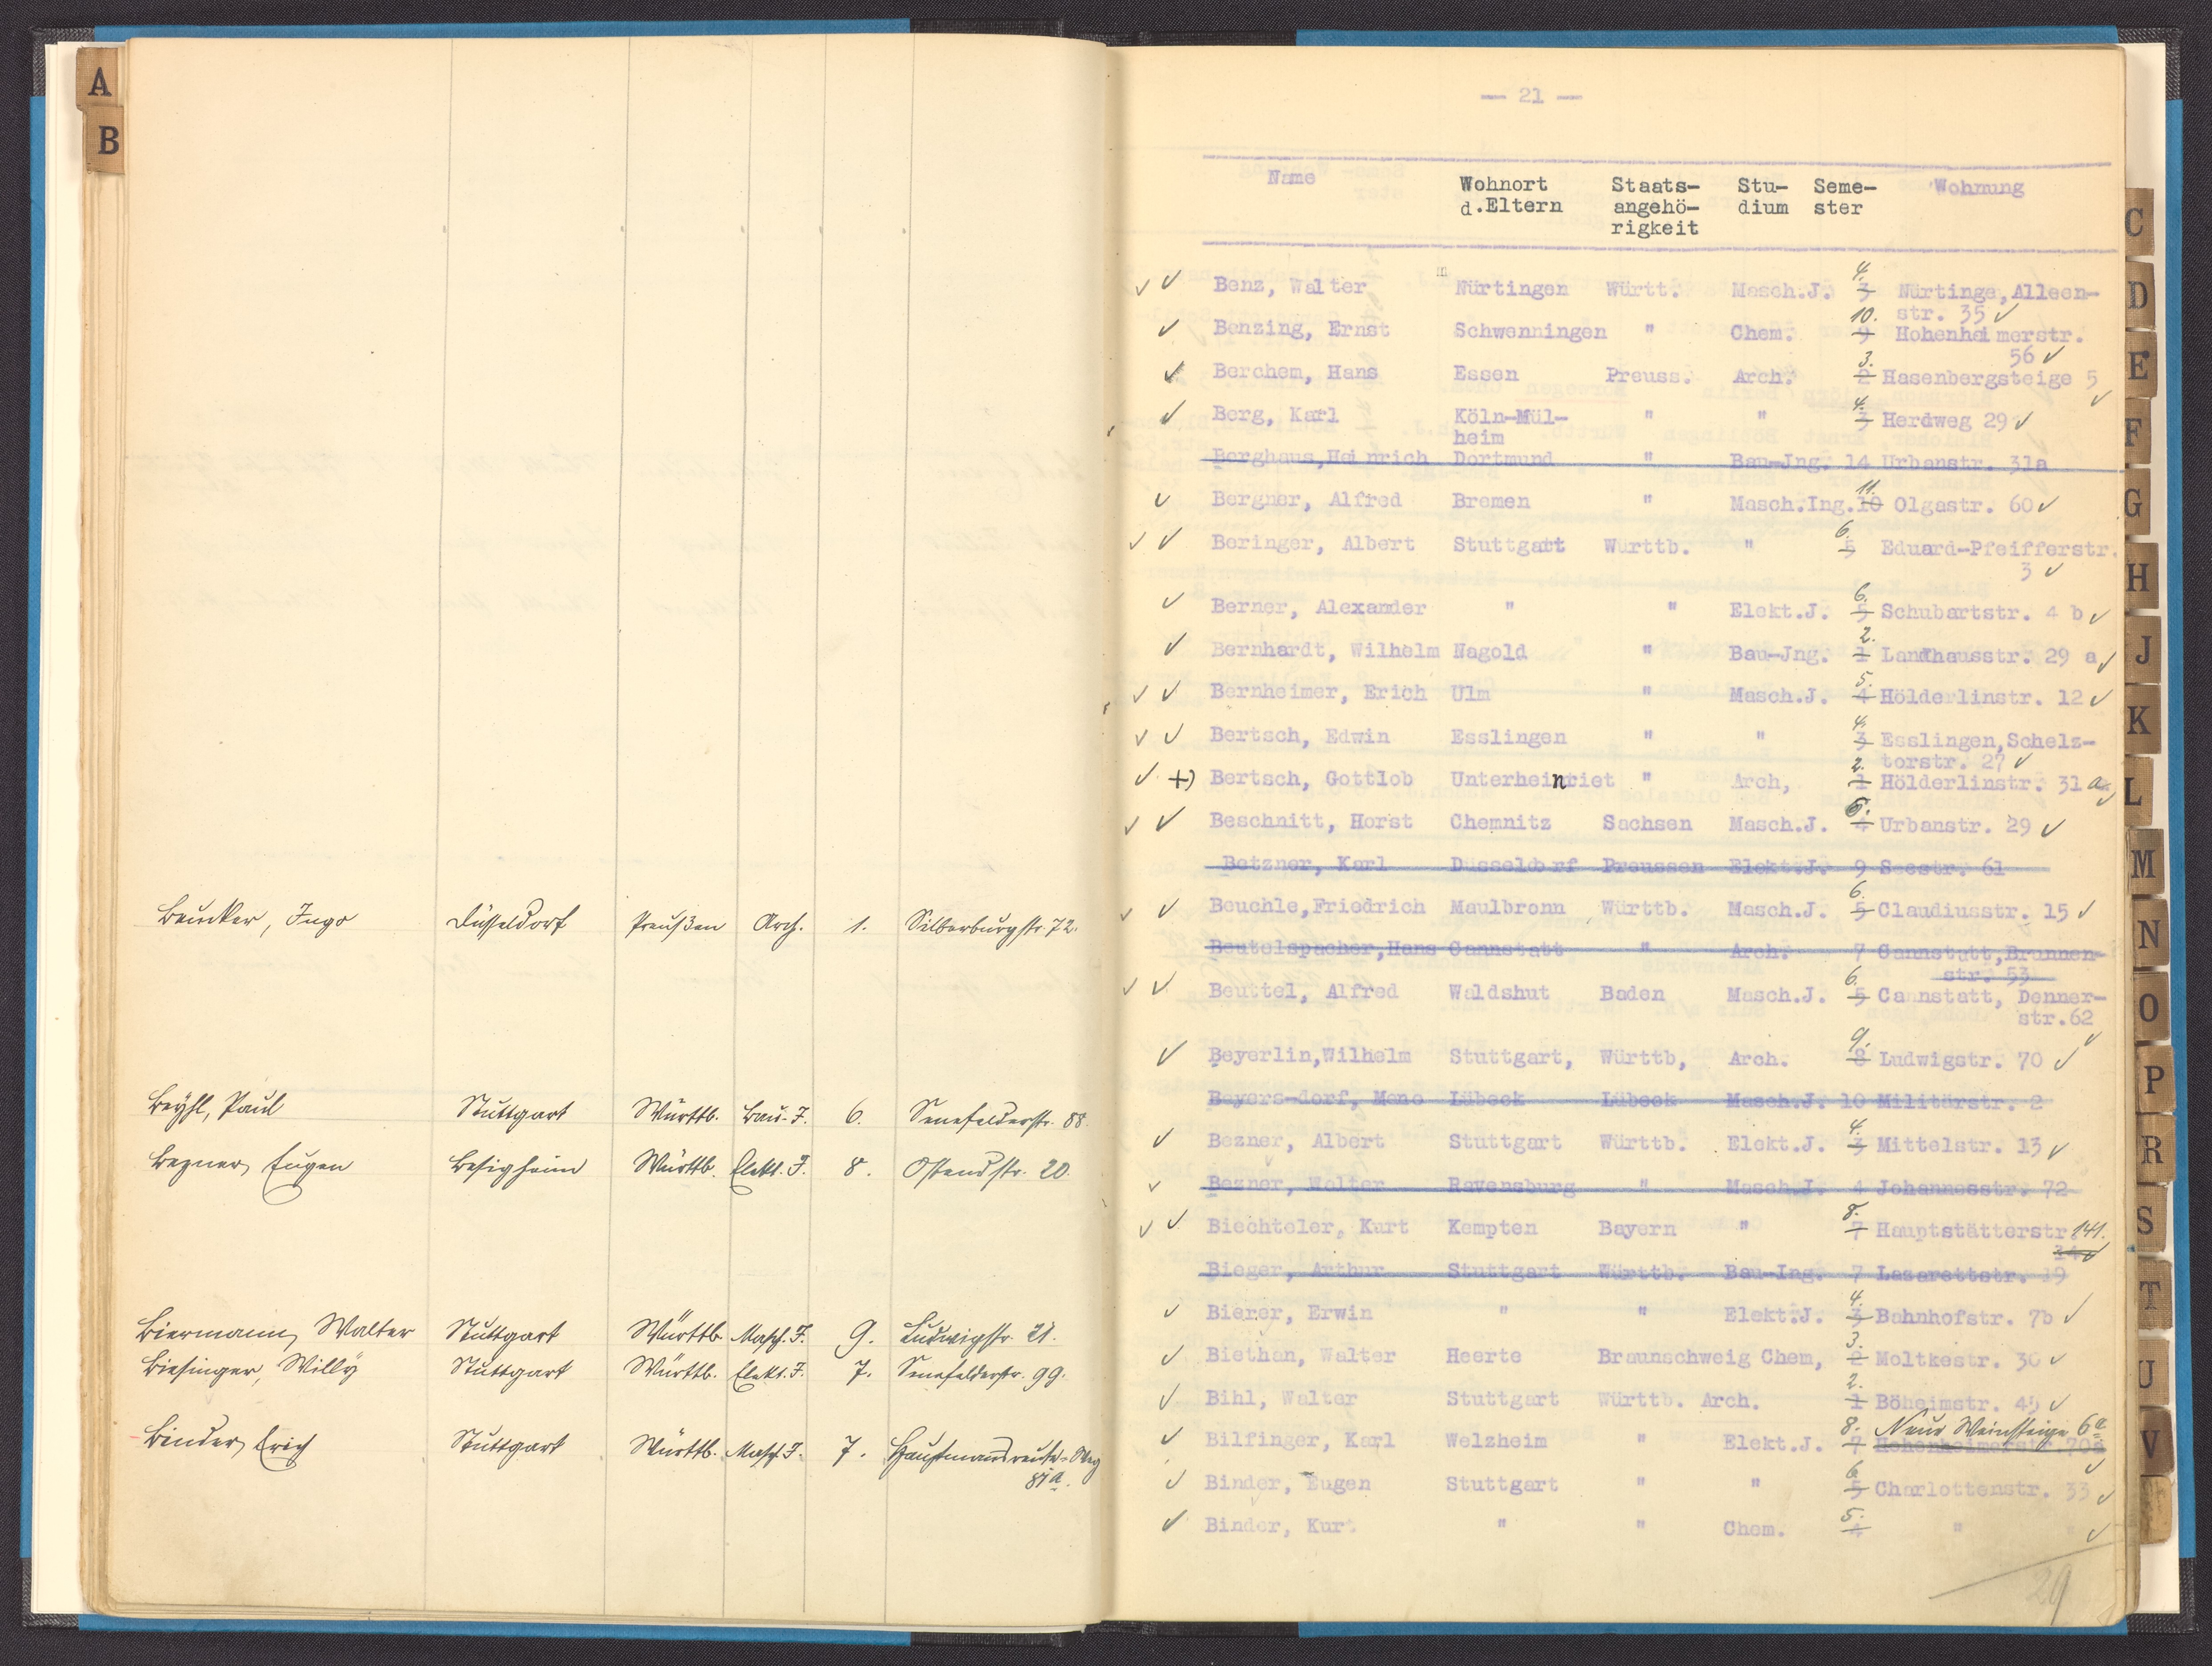 A
B
Beucker, Ingo Düsseldorf Preußen Arch. 1. Silberburgstr. 72.
Beyhl, Paul Stuttgart Württb. Bau-J. 6. Senefelderstr. 88.
Bezner, Eugen Besigheim Württb. Elekt. J. 8. Ostendstr. 20.
Biermann, Walter Stuttgart Württb. Masch. J. 9. Ludwigstr. 21.
Biesinger, Willy Stuttgart Württb. Elekt. J. 7. Senefelderstr. 99.
Binder, Erich Stuttgart Württb. Masch. J. 7. Hauptmannsreute-Weg
81 a.
— 21 —
Name Wohnort Staats- Stu- Seme- Wohnung
d.Eltern angehö- dium ster
rigkeit
Benz, Walter Nürtingen Württ. Masch.J. 4. 3 Nürtinge,Alleen-
str. 35
Benzing, Ernst Schwenningen " Chem. 10. 9 Hohenheimerstr.
56
Berchem, Hans Essen Preuss. Arch. 3. 2 Hasenbergsteige 5
Berg, Karl Köln-Mül- " " 4. 3 Herdweg 29
heim
Berghaus,Heinrich Dortmund " Bau-Jng. 14 Urbanstr. 31a
Bergner, Alfred Bremen " Masch.Ing. 11. 10 Olgastr. 60
Beringer, Albert Stuttgatt Württb. " 6. 5 Eduard-Pfeifferstr.
3
Berner, Alexander " " Elekt.J. 6. 5 Schubartstr. 4 b
Bernhardt, Wilhelm Nagold " Bau-Jng. 2. 1 Landhausstr. 29 a
Bernheimer, Erich Ulm " Masch.J. 5. 4 Hölderlinstr. 12
Bertsch, Edwin Esslingen " " 4. 3 Esslingen,Schelz-
torstr. 27
+) Bertsch, Gottlob Unterheinriet " Arch, 2. 1 Hölderlinstr. 31 a
Beschnitt, Horst Chemnitz Sachsen Masch.J. 6. 4 Urbanstr. 29
Betzner, Karl Düsseldorf Preussen Elekt.J. 9 Seestr. 61
Beuchle,Friedrich Maulbronn Württb. Masch.J. 6. 5 Claudiusstr. 15
Beutelspacher,Hans Cannstatt " Arch. 7 Cannstatt,Brunnen-
str. 53
Beuttel, Alfred Waldshut Baden Masch.J. 6. 5 Cannstatt, Denner-
str.62
Beyerlin,Wilhelm Stuttgart, Württb, Arch. 9. 8 Ludwigstr. 70
Beyers-dorf, Meno Lübeck Lübeck Masch.J. 10 Militärstr. 2
Bezner, Albert Stuttgart Württb. Elekt.J. 4. 3 Mittelstr. 13
Bezner, Walter Ravensburg " Masch.J. 4 Johannesstr. 72
Biechteler, Kurt Kempten Bayern " 8. 7 Hauptstätterstr 141.
Bieger, Arthur Stuttgart Württb. Bau-Ing. 7 Lazarettstr. 19
Bierer, Erwin " " Elekt.J. 4. 3 Bahnhofstr. 7b
Biethan, Walter Heerte Braunschweig Chem, 3. 2 Moltkestr. 30
Bihl, Walter Stuttgart Württb. Arch. 2. 1 Böheimstr. 45
Bilfinger, Karl Welzheim " Elekt.J. 8. 7 Neue Weinsteige 6 a
Hohenheimerstr. 70a
Binder, Eugen Stuttgart " " 6. 5 Charlottenstr. 33
Binder, Kurt " " Chem. 5. 4 " "
29
C
D
E
F
G
H
J
K
L
M
N
O
P
R
S
T
U
V